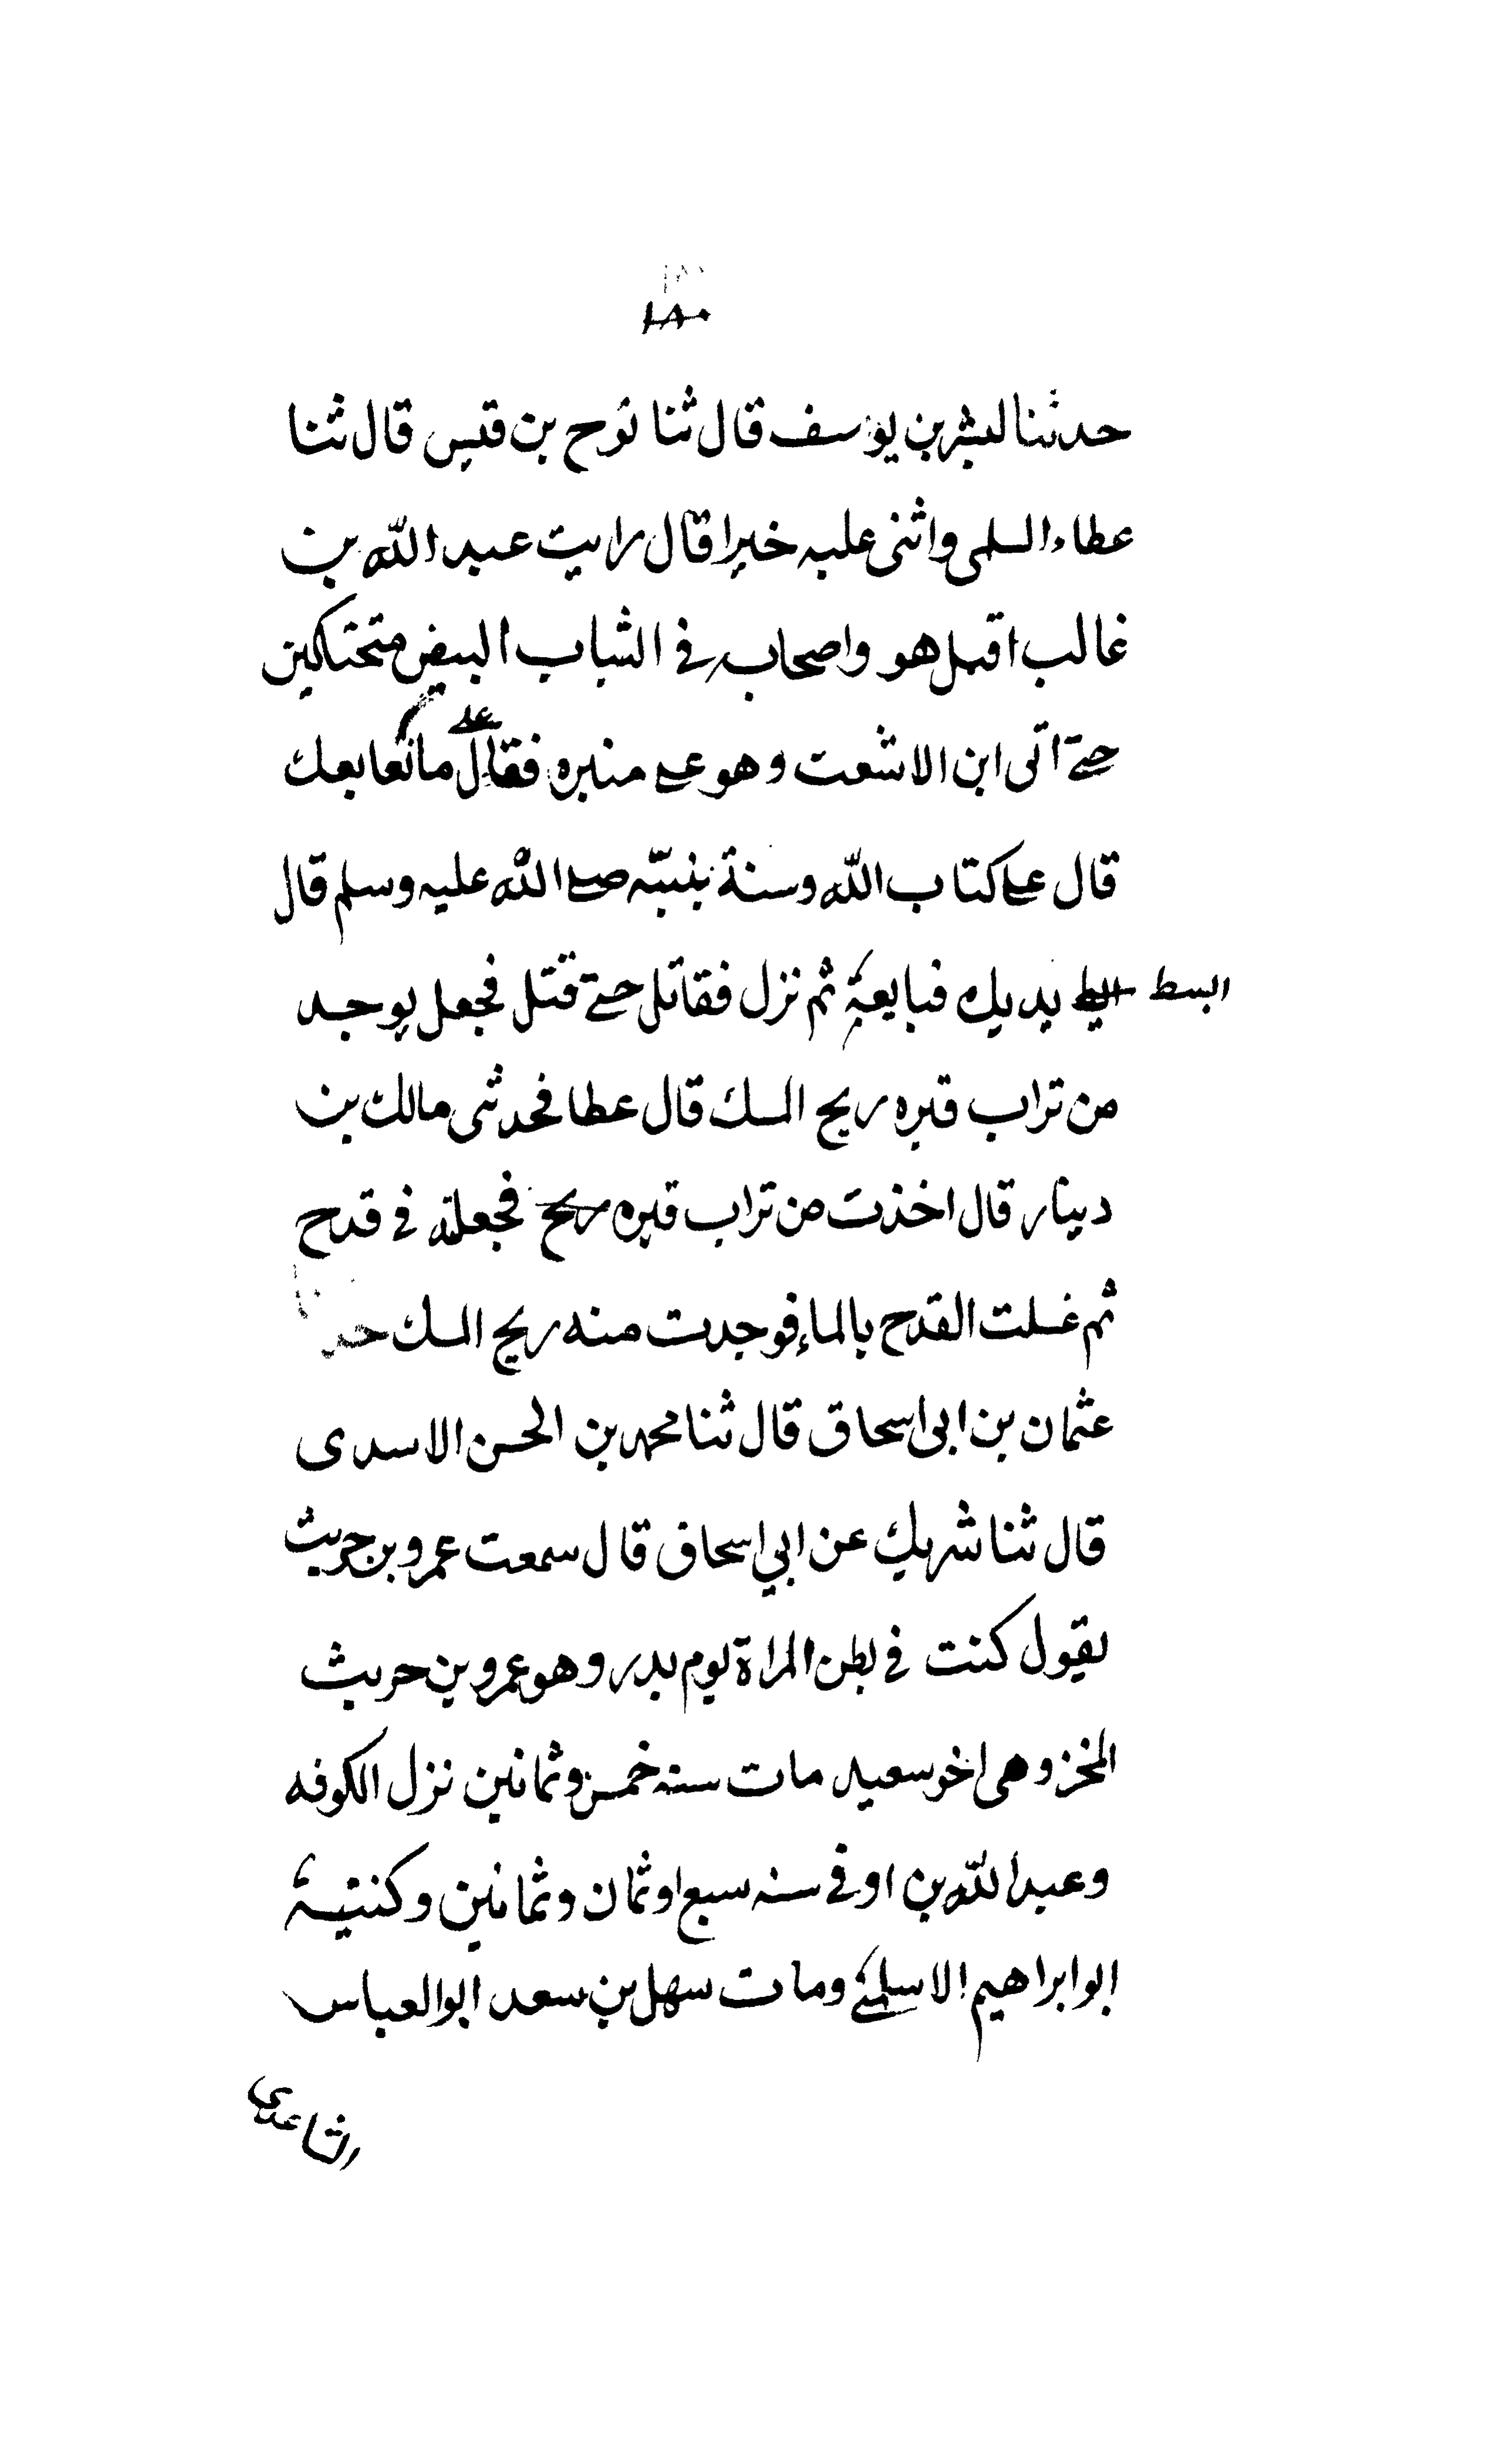 ١٨٠
حدثنا بشر بن يوسف قال ثنا نوح بن قيس قال ثنا
عطاء السلمى واثنى عليه خيرا قال رايت عبد الله بن
غالب اقبل هو واصحابه في الثياب البيض متحنكين
حتى اتى ابن الاشعث وهو على منبره فقال على ما نبايعك
قال على كتاب الله وسنة نبيه صلى الله عليه وسلم قال
ابسط يديك فبايعه ثم نزل فقاتل حتى قتل فجعل يوجد
من تراب قبره ريح المسك قال عطا فحدثنى مالك بن
دينار قال اخذت من تراب قبره ريح فجعلته في قدح
ثم غسلت القدح بالماء فوجدت منه ريح المسك
عثمان بن ابى اسحاق قال ثنا محمد بن الحسن الاسدى
قال ثنا شريك عن ابي اسحاق قال سمعت عمرو بن حريث
يقول كنت في بطن المراة يوم بدر وهو عمرو بن حريث
المخزومى اخو سعيد مات سنه خمس وثمانين نزل الكوفه
وعبد الله بن اوفى سنه سبع او ثمان وثمانين وكنيته
ابو ابراهيم الاسلمي ومات سهل بن سعد ابو العباس
الساعدى